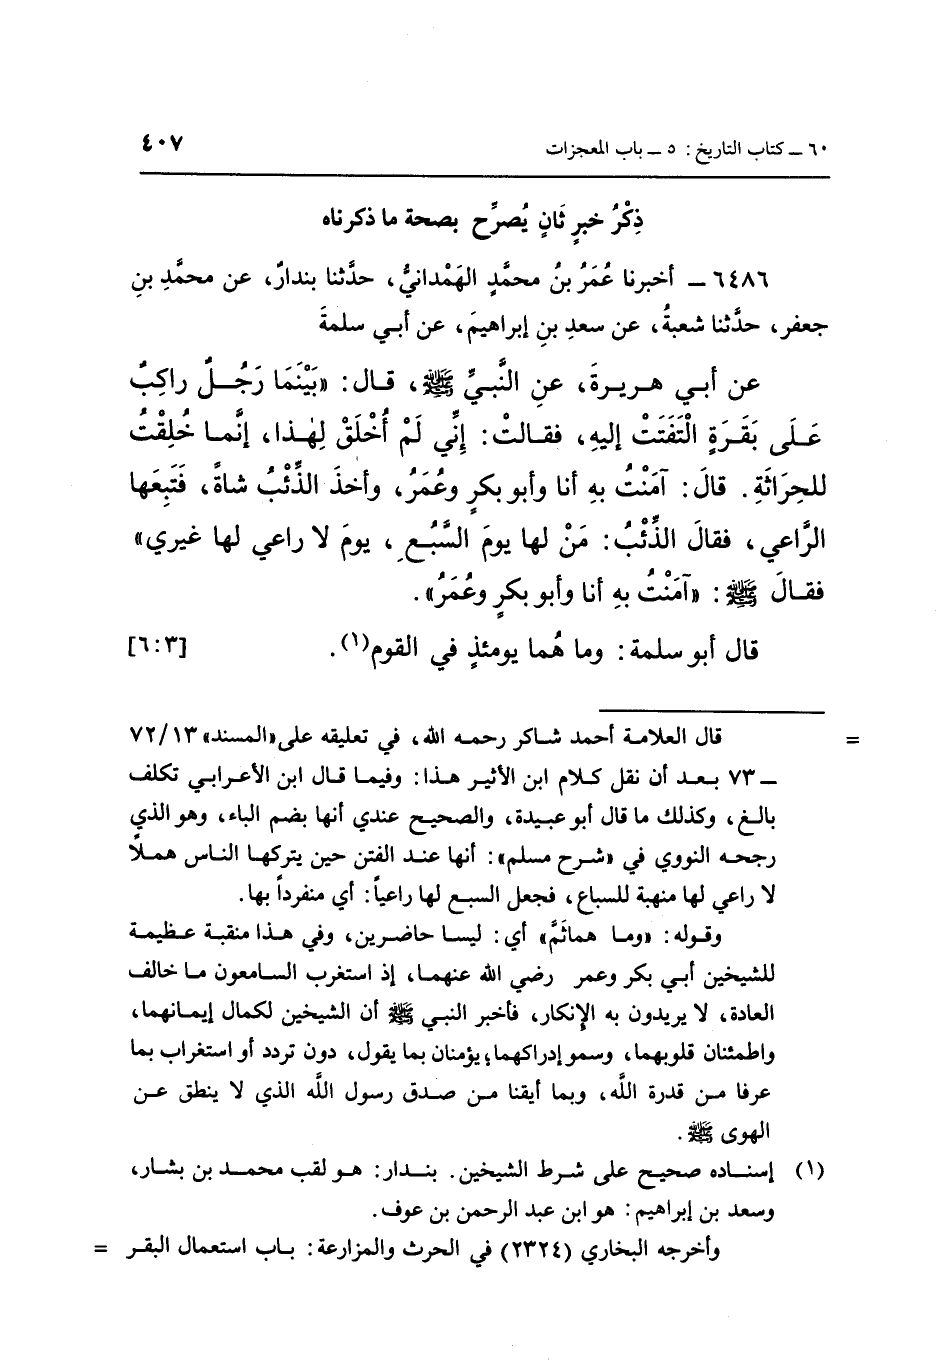 ٦٠ ــ كتاب التاريخ : ٥ ــ باب المعجزات ٤٠٧
ذِكْرُ خبرٍ ثَانٍ يُصرِّح بصحة ما ذكرناه
٦٤٨٦ ــ أخبرنا عُمَرُ بنُ محمَّدٍ الهَمْدانيُّ، حدَّثنا بندارٌ، عن محمَّدِ بنِ
جعفر، حدَّثنا شعبةُ، عن سعدِ بنِ إبراهيمَ، عن أبي سلمةَ
عن أبي هريرةَ، عنِ النَّبيِّ ﷺ، قال: «بَيْنَمَا رَجُلٌ راكِبٌ
عَلَى بَقَرَةٍ الْتَفَتَتْ إليهِ، فقالتْ: إِنِّي لَمْ أُخْلَقْ لِهٰذا، إنَّما خُلِقْتُ
للحِرَاثَةِ. قالَ: آمَنْتُ بهِ أنا وأبو بكرٍ وعُمَرُ، وأخذَ الذِّئْبُ شاةً، فَتَبِعَها
الرَّاعي، فقالَ الذِّئْبُ: مَنْ لها يومَ السَّبُعِ، يومَ لا راعي لها غيري»
فقالَ ﷺ: «آمَنْتُ بهِ أنا وأبو بكرٍ وعُمَرُ».
قال أبو سلمة: وما هُما يومئذٍ في القوم(١). [٦:٣]
= قال العلامة أحمد شاكر رحمه الله، في تعليقه على «المسند» ٧٢/١٣
ــ ٧٣ بعد أن نقل كلام ابن الأثير هذا: وفيما قال ابن الأعرابي تكلف
بالغ، وكذلك ما قال أبو عبيدة، والصحيح عندي أنها بضم الباء، وهو الذي
رجحه النووي في «شرح مسلم»: أنها عند الفتن حين يتركها الناس هملاً
لا راعي لها منهبة للسباع، فجعل السبع لها راعياً: أي منفرداً بها.
وقوله: «وما هماثَمَّ» أي: ليسا حاضرين، وفي هذا منقبة عظيمة
للشيخين أبي بكر وعمر رضي الله عنهما، إذ استغرب السامعون ما خالف
العادة، لا يريدون به الإنكار، فأخبر النبي ﷺ أن الشيخين لكمال إيمانهما،
واطمئنان قلوبهما، وسمو إدراكهما، يؤمنان بما يقول، دون تردد أو استغراب بما
عرفا من قدرة اللَّه، وبما أيقنا من صدق رسول اللَّه الذي لا ينطق عن
الهوى ﷺ.
(١) إسناده صحيح على شرط الشيخين. بندار: هو لقب محمد بن بشار،
وسعد بن إبراهيم: هو ابن عبد الرحمن بن عوف.
وأخرجه البخاري (٢٣٢٤) في الحرث والمزارعة: باب استعمال البقر =